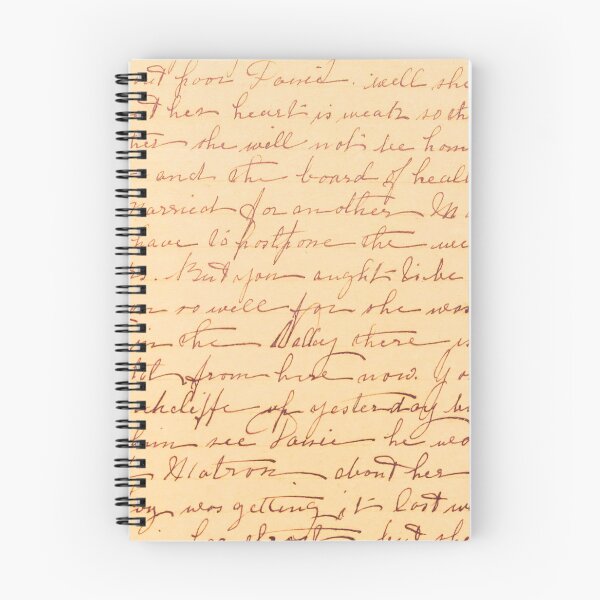 poor Daisie. well she
her heart is weak so th
she will not be hom
and the board of heal
married for another M
have to postpone the we
But you aught to be
so well for she was
in the Valley there is
from here now. yo
up yesterday b
him see Daisie he wo
Matron about her
was getting it last w
but she